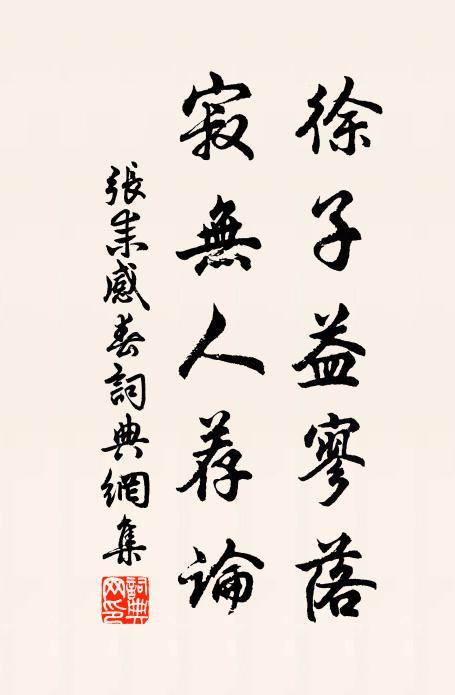 徐子益寥落
寂無人荐論
張耒感春詞典網集
詞典網印